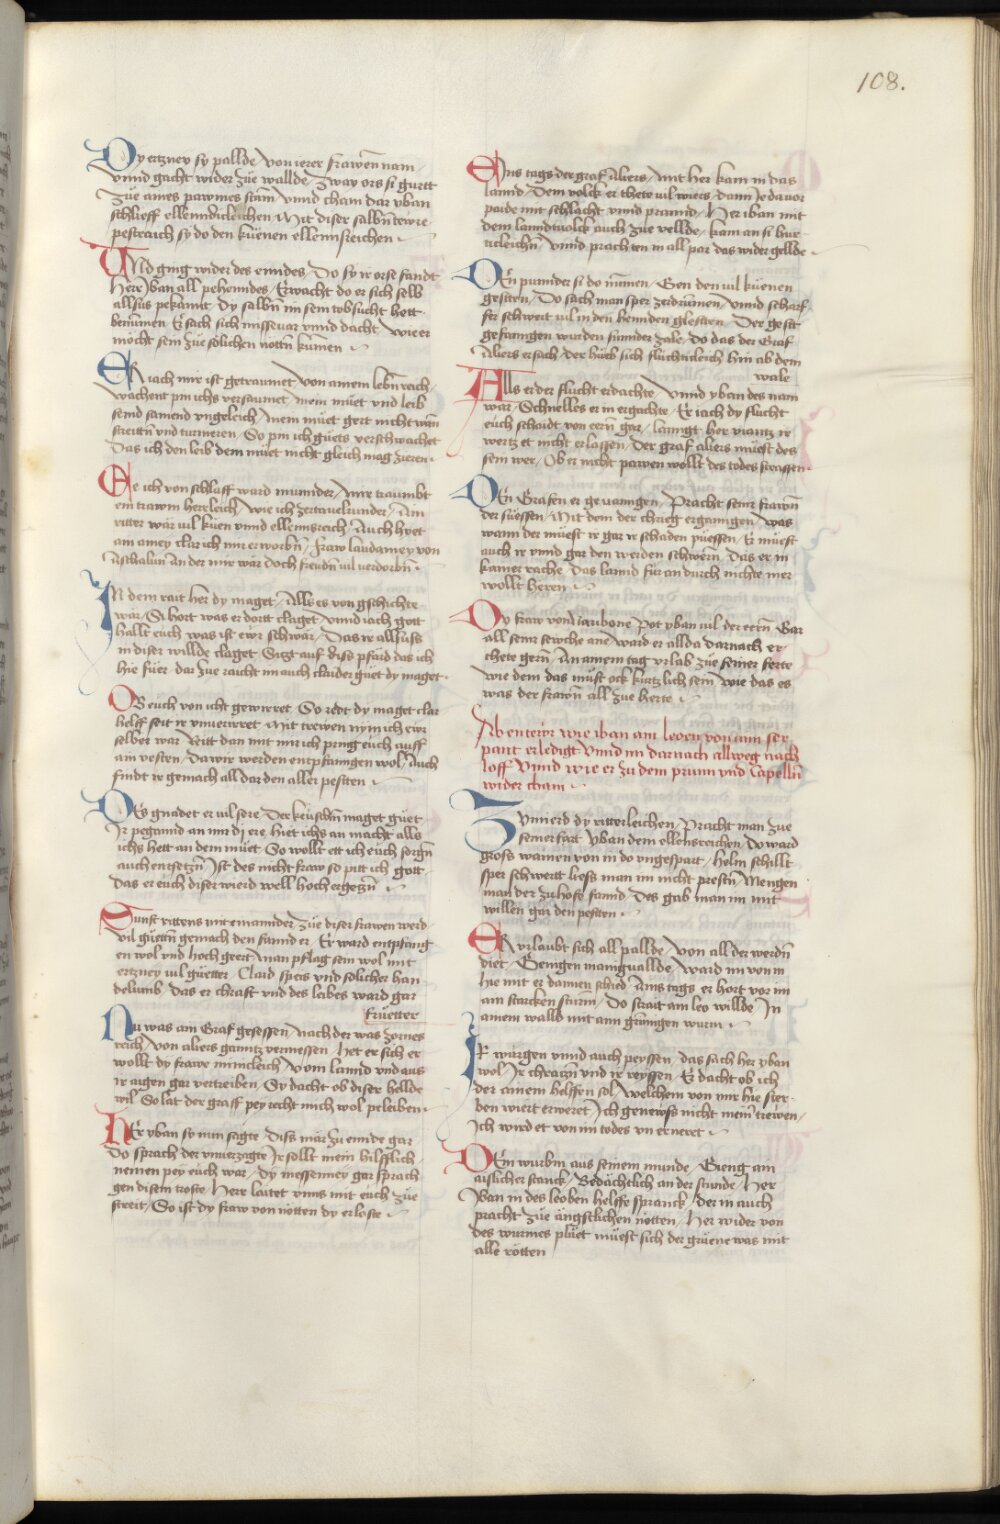 108.
Dy ertzney sy pallde / Von ierer frawen nam /
vnnd gacht wider züe wallde / Zway ors si gurtt
Züe aines pawmes stam / vnnd cham dar yban
schlieff ellenndicleichen / Mit diser salbn tewre
pestraich sy do den küenen ellennsreichen
Vnd ging wider des enndes / Do sy ir orse fandt
Herr yban all pehenndes / Erwacht do er sich selb
allsüs pekannt / Dy salbn im sein tobsucht hett
benumen / Er sach sich missevar vnnd dacht / wie er
möcht sein züe sölichen nottn kumen
Er iach mir ist getraumet / Von ainem lebn reich /
wachent pin ichs versaumet / mein müet vnd leib
seind samend vngeleich / Mein müet gert nicht wan
streittn vnd turnieren / So pin ich güets verschwachet
Das ich den leib dem müet nicht gleich mag zieren
Ee ich von schlaff ward munnder / Mir traumbt
ein trawm herleich / Wie ich zer tauelrunder / Ain
ritter wär vil küen vnnd ellennsreich / Auch hyet
am amey clar ich mir erworbn / Fraw laudamey von
Aschalun / An der mir wär doch freudn vil verdorbn
In dem rait her dy maget / Alls es von gschichte
wär / Si hort was er dortt claget / vnnd iach gott
hallt euch was ist ewr schwär / Das ir allsüss
in diser willde claget / Sitzt auf diss pfärd das ich
hie füer / dar züe raicht im auch claider güet dy maget
Ob euch von icht gewirret / So redt dy maget clar
helff seit ir vnuerirret / Mit trewen nym ich ewr
selber war / Reitt dan mit mir ich pring euch auff
am vesten / Da wir werden entpfanngen wol / Auch
findt ir gemach all dar den aller pesten
Des gnadet er vil sere / Der keüschn maget güet
Ir pegannd an mir di ere / hiet ichs an macht alls
ichs hett an dem müet / So wollt ett ich euch sorgn
auch entsetzn / Ist des nicht fraw so pitt ich gott
das er euch diser wierd well hoch ergetzn
Sunst rittens mit einannder / Züe diser frawen werd
vil güettn gemach den fannd er / Er ward entpfang
en wol vnd hoch geert / Man pflag sein wol mit
ertzney vil güetter / Claid speis vnd solicher han
delunb / das er chrafft vnd des leibes ward gar
frütter
Nu was ain Graf gesessen / Nach der was zornes
reich / Von aliers gantz vermessen / Het er sich er
wollt dy frawe minicleich / Vom lannd vnd aus
ir aigen gar vertreiben / Sy dacht ob diser hellde
wil / So lat der graff pey recht mich wol peleiben
Her yban sy nun sagte / Diss mär zu ennde gar
Do sprach der vnuerzagte / Ir sollt mein hilfflich
nemen pey euch war / dy messenney gar sprach
gen disem troste / Herr laitet vnns mit euch züe
streit / So ist dy fraw von nötten dy erloste
Ains tags der graf Aliers / Mit her kam in das
lannd / Dem volck er thete vil wiers / dann ye da vor
paide mit schlacht vnnd prannd / Her iban mit
dem lanndtuolck auch züe vellde / kam an si hur
ticleichn / vnnd prach ten in all par das widergellde
Den punnder si do nümen / Gen den vil küenen
gessten / Do sach man sper zerdrümen / Vnnd scharf
fer schwert vil in den hennden glessten / Der gest
gefanngen wurden sunnder zale / do das der Graf
Aliers ersach / der hüeb sich fluchticleich hin ab dem
wale
Alls er der flucht erdachte / Vnnd yban des nam
war / Schnelles er in ergachte / Er iach dy flucht
euch schaidt von eern gar / lannget her viantz ir
wertz et nicht erlassen / Der graf aliers müest des
sein wer / Ob er nicht pawen wollt des todes strassen
Den Grafen er gevanngen / Pracht seinr frawn
der süessen / Mit dem der chrieg erganngen / was
wann der müest ir gar ir schaden püessen / Er müest
auch ir vnnd gar den werden schwern / Das er in
kainer rache / Das lannd füran durch nichte mer
wollt heren
Dy fraw von narisone / Pot yban vil der eern / Gar
all seinr siechte ane / ward er allda darnach er
chete gern / An ainem tag vrlab züe seiner ferte
Wie dem das müst ock kurtzlich sein / Wie das es
was der frawn all züe herte
Abentewr wie iban ain leoen von ainn ser
pant erledigt vnnd im darnach allweg nach
loff vnnd wie er zu dem prunn vnd Capelln
wider cham
Zymierd dy ritterleichen / Pracht man züe
seiner fart / Yban dem ellensreichen / do ward
gross wainen von in do vngespart / helm schillt
sper schwertt liess man im nicht prestn / Mengen
man der zu hofe fannd / Des gab man im mit
willen gar den pesten
Er vrlaubt sich all pallde / Von all der werdn
diet / Seingen manigualde / ward im von in
hie mit er dannen schied / Ains tags er hort vor im
ain starcken sturm / Do strait ain leo willde / In
ainem walld mit ainn grimigen wurm
Ir würgen vnnd auch peyssen / das sach her yban
wol / Ir chratzn vnd ir reyssen / Er dacht ob ich
der ainem helffen sol / Welchem von mir hie ster
ben wiert erweret / Ich geneuss nicht meinr trewen /
Ich wird et von im todes vn erneret
Dem wurbm aus seinem munde / Gieng ain
aislicher stanck / Bedächtlich an der stunde / Her
Yban in des leoben helffe spranck / der in auch
pracht züe ängstlichen nötten / Her wider von
des wurmes plüet müest sich der grüene was mit
alle rötten